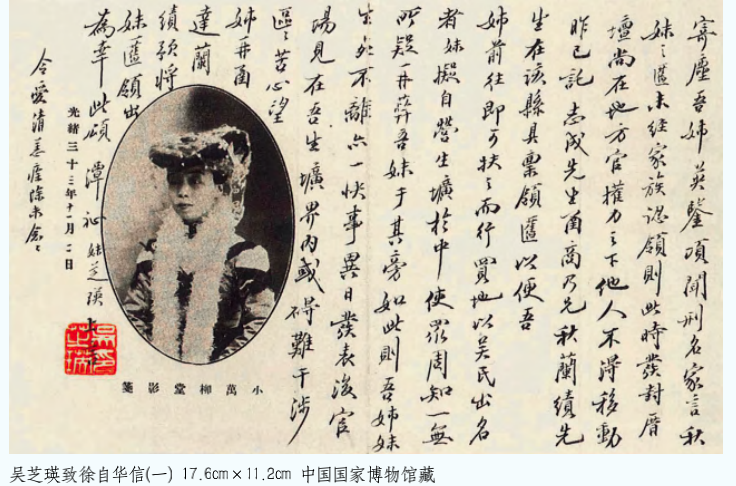 寄塵吾姊英鑒頃聞刑名家言秋
妹之匶未經家族認領則此時發封厝
壇尚在地方官權力之下他人不得移動
昨已託志成先生函商乃先秋蘭績先
生在該縣具稟領匶以便吾
姊前往即可扶之而行買地以吴氏出名
者妹擬自營生壙於中使眾周知一無
所疑再葬吾妹于其旁如此則吾姊妹
生死不離亦一快事異日發表後官
場見在吾生壙界內或碍難干涉
區區苦心望
姊再函
達蘭
績預將
妹匶領出
為幸此頌 潭祉 妹芝瑛上
光緒三十三年十一月二日
令愛清恙痊除未念念
小萬柳堂影箋
吴芝瑛致徐自华信(一) 17.6cm×11.2cm 中国国家博物馆藏